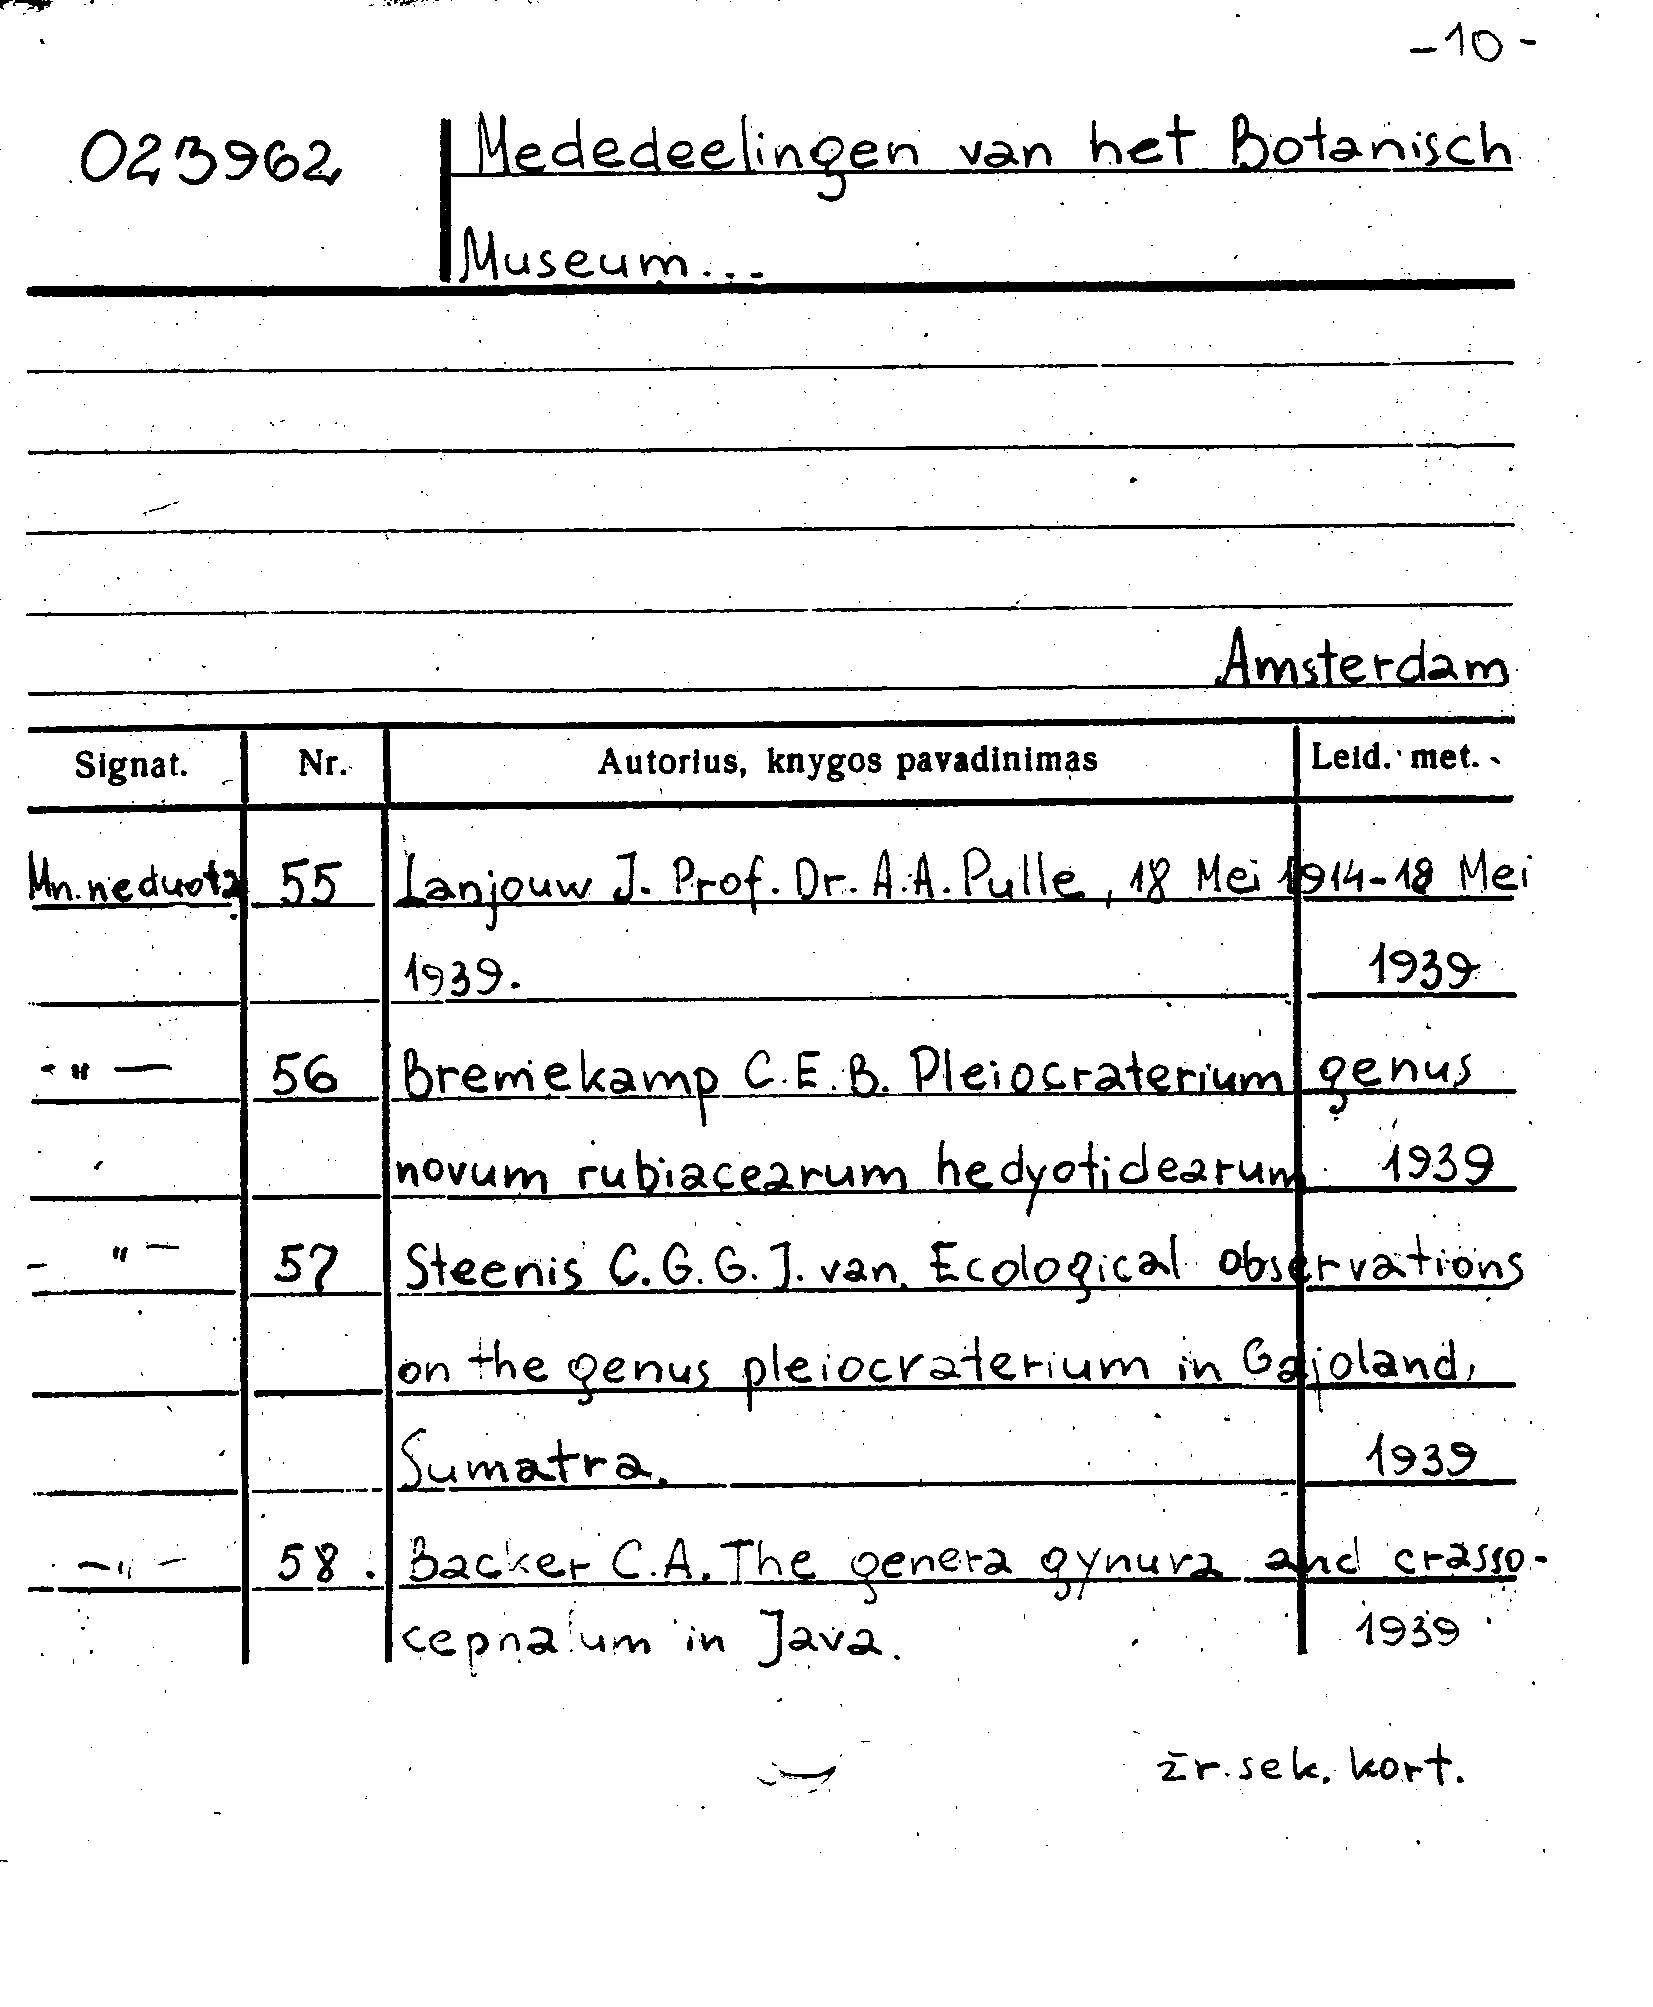 -10-
023962 Mededeelingen van het Botanisch
Museum...
Amsterdam
Signat. Nr. Autorius, knygos pavadinimas Leid. met.
Mn. neduota 55 Lanjouw J. Prof. Dr. A.A. Pulle, 18 Mei 1914-18 Mei
1939. 1939
-"- 56 Bremekamp C.E.B. Pleiocraterium genus
novum rubiacearum hedyotidearum 1939
-"- 57 Steenis C.G.G.J. van. Ecological observations
on the genus pleiocraterium in Gajoland,
Sumatra. 1939
-"- 58. Backer C.A. The genera gynura and crasso-
cephalum in Java. 1939
žr. sek. kort.